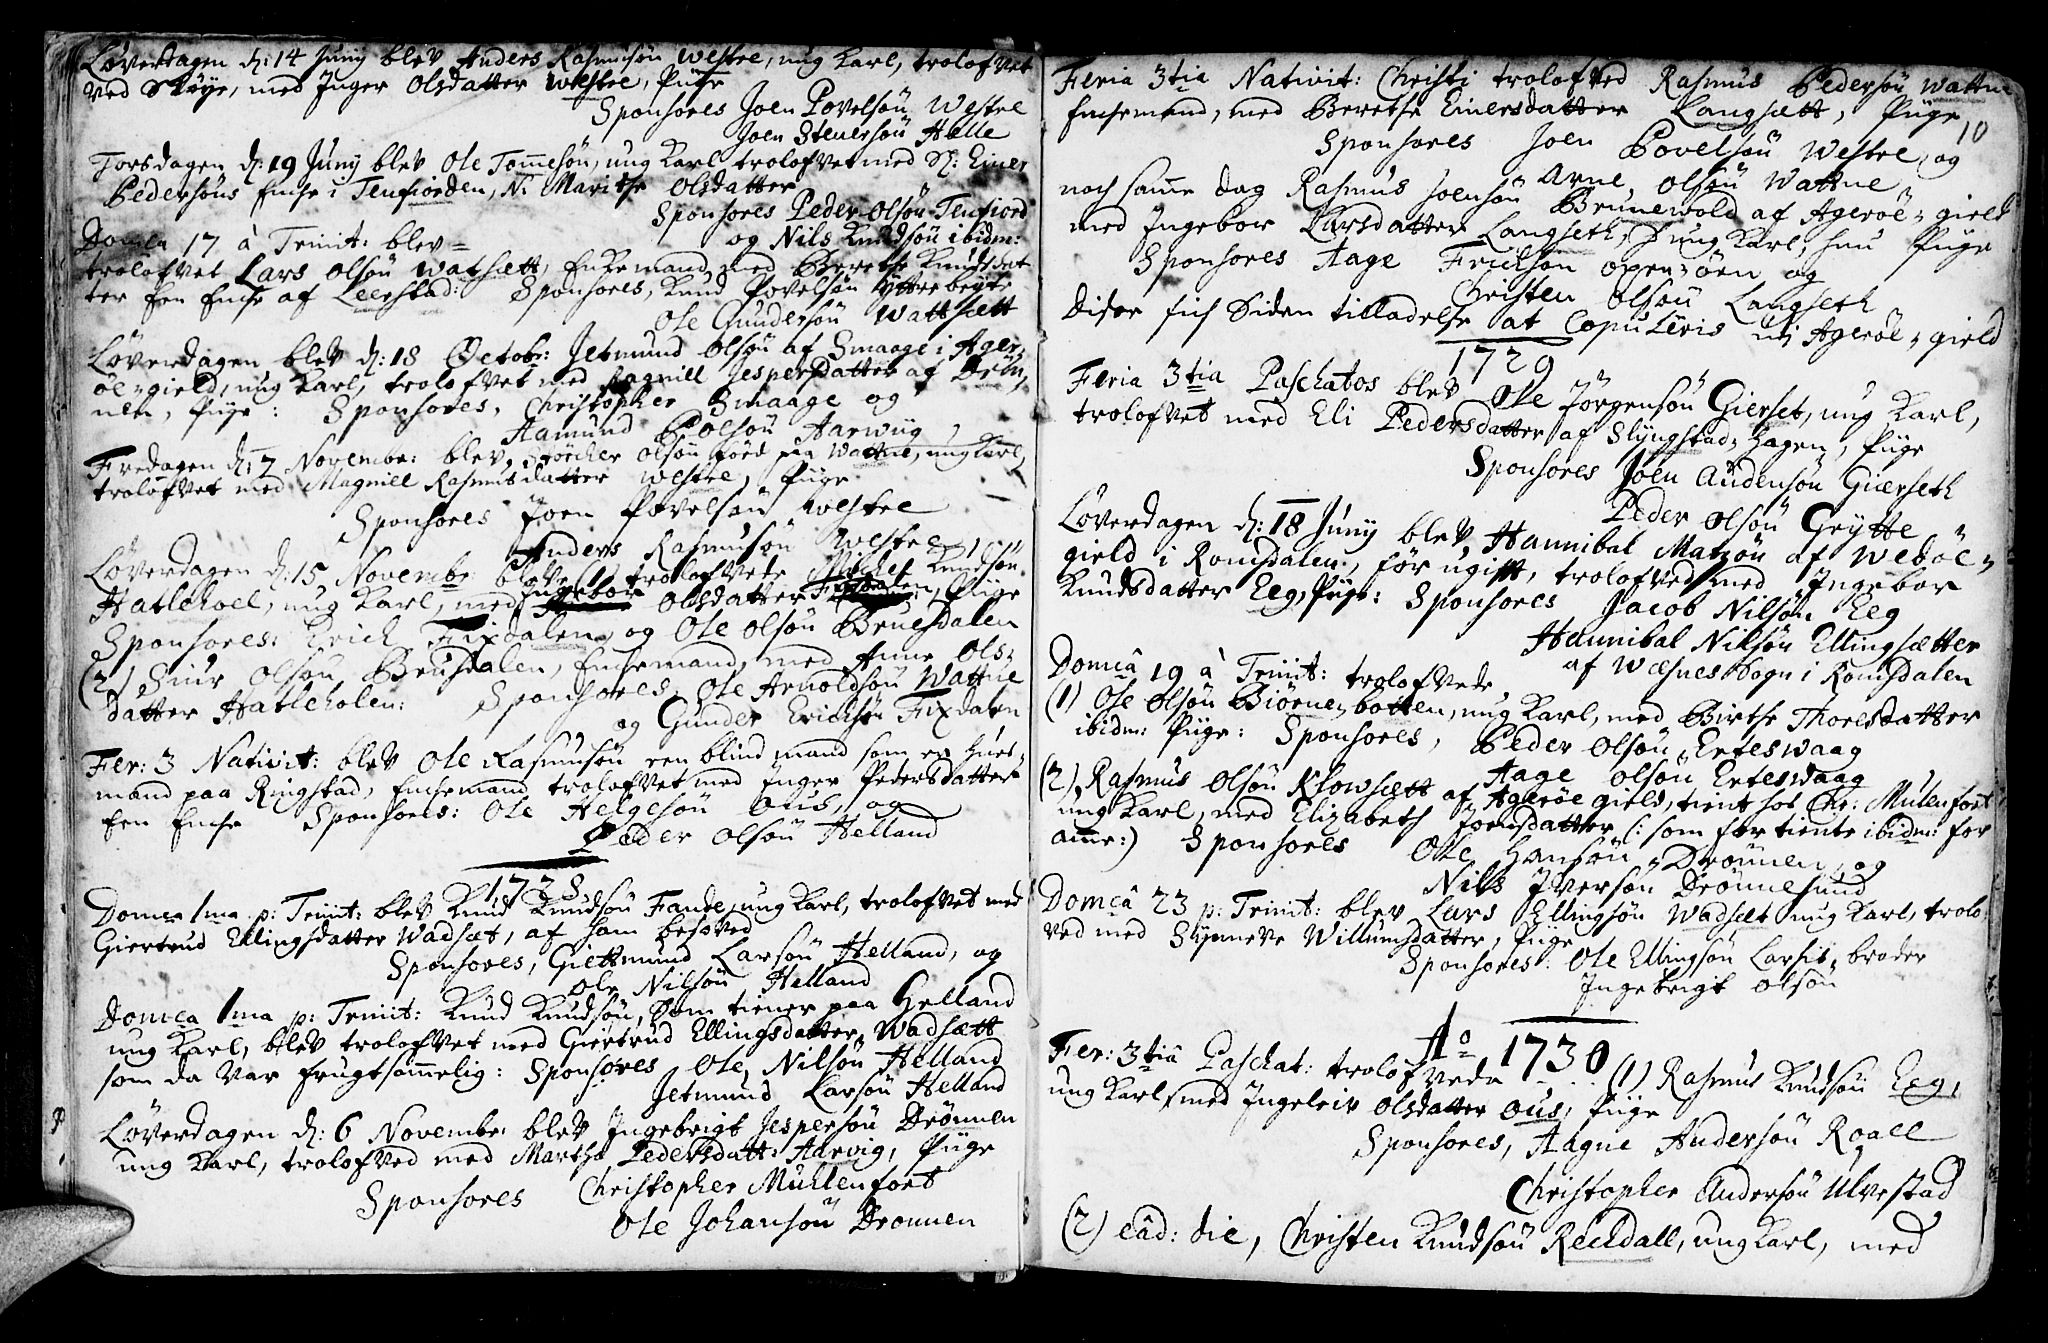 Løverdagen d: 14 Junij blev Anders Rasmusøn Westre, ung Karl, trolofvet
ved Skøye, med Inger Olsdatter Westre, Piige
Sponsores Joen Povelsøn Westre
Joen Steuersøn Helle
Torsdagen d: 19 Junij blev Ole Tommesøn, ung Karl trolofvet med Sl: Einer
Pedersøns Enche i Tenfiorden, N: Marithe Olsdatter
Sponsores Peder Olsøn Tenfiord
Domca 17 à Trinit: blev =
og Nils Knudsøn ibidm:
trolofvet Lars Olsøn Watsætt, Enkemand med Berethe Knudsdat
ter Een Enche af Leerstad: Sponsores, Knud Povelsøn Ytterbøyte
Ole Gundersøn Wattsætt
Løverdagen blev d: 18 Octobr: Jetmund Olsøn af Smaage i Ager,
öe=gield, ung Karl, trolofvet med Ragnill Jespersdatter af Drön,
nen, Piige: Sponsores, Christopher Smaage og
Aamund Polsøn Aarwiig
Fredagen d: 7 Novembr: blev, Störcher Olsøn förd paa Wattne, ung Karl,
trolofvet med Magnill Rasmusdatter Westre, Piige
Sponsores Joen Povelsøn Westre
Anders Rasmusøn Westre
Løverdagen d: 15 Novembr: bleve (1) trolofvede Michel Knudsøn
Hatlehoel, ung Karl, med Ingebor Olsdatter Fixdalen, Piige
Sponsores: Erich Fixdalen, og Ole Olsøn Bruesdalen
(2) Siur Olsøn Brusdalen, Enchemand, med Anne Ols:
datter Hatleholen: Sponsores, Ole Arnoldsøn Wattne
og Gunder Erichsøn Fixdalen
Fer: 3 Nativit: blev Ole Rasmusøn een blind mand som er Huus,
mand paa Ringstad, Enchemand trolofvet med Inger Pedersdatter
Een Enche Sponsores: Ole Helgesøn Ous, og
Peder Olsøn Helland
1728
Domca 1ma p: Trinit: blev Knud Knudsøn Fande, ung Karl, trolofvet med
Giertrud Ellingsdatter Wadsæt, af ham besøved
Sponsores, Giettmund Larsøn Helland, og
Ole Nilsøn Helland
Domca 1ma p: Trinit: Knud Knudsøn, Som tiener paa Helland
ung Karl, blev trolofvet med Giertrud Ellingsdatter, Wadsætt
som da var frugtsommelig: Sponsores Ole, Nilsøn Helland
Jetmund Larsøn Helland
Løverdagen d: 6 Novembr: blev Ingebrigt Jespersøn Drönnen
ung Karl, trolofved med Martha Pedersdatt: Aarvig, Piige
Sponsores Christopher Muhlenfort
Ole Johansøn Dronnen
Feria 3tia Nativit: Christi trolofved Rasmus Pedersøn Wattne
Enchemand, med Berethe Einersdatter Langsætt, Piige
10
Sponsores Joen Povelsøn Westre, og
Arne, Olsøn Wattne
noch samme dag Rasmus Joensøn Brunewold af Ageröe=gield
med Ingebor Larsdatter Langseth, Hand ung Karl, hun Piige
Sponsores Aage Erichsøn openzöen og
Christen Olsøn Langseth
disse fich Siden tilladelse at Copuleris udj Ageröe=gield
1729
Feria 3tia Paschatos blev Ole Jörgensøn Gierset, ung Karl,
trolofvet med Eli Pedersdatter af Slyngstad, Hagen, Piige
Sponsores Joen Audensøn Giærseth
Peder Olsøn Grytte
Løverdagen d: 18 Junij blev Hannibal Matzøn af Wedöe=
gield i Romsdalen, för ugift, trolofved med Ingebor
Knudsdatter Eeg, Piige: Sponsores Jacob Nilsøn Eeg
Hannibal Nilsøn Ellingsætter
af Wæsnes Sogn i Romsdalen
Domcâ 19 à Trinit: trolofvede
(1) Ole Olsøn Biörnebotten, ung Karl, med Birthe Thoresdatter
ibidm: Piige: Sponsores, Peder Olsøn Erteswaag
Aage Olsøn Erteswaag
(2) Rasmus Olsøn Klowsætt af Ageröe gield, tient hos Chr: Mulenfort
ung Karl, med Elizabeth Joensdatter (: som for tiente ibidm: for
amme:) Sponsores Ole Hansøn Drönnen, og
Nils Iversøn Drönnesund
Domcâ 23 p: Trinit: blev Lars Ellingsøn Wadsæt ung Karl, trolo
ved med Synneve Willumsdatter, Piige
Sponsores: Ole Ellingsøn Larses broder
Ingebrigt Olsøn
Ao 1730
Fer: 3tiâ Paschat: trolofvede (1) Rasmus Knudsøn Eeg,
ung Karl, med Ingeleiv Olsdatter Ous, Piige
Sponsores, Aagne Andersøn Roall
Christopher Andersøn Ulvestad
(2) eâd: die, Christen Knudsøn Reedall, ung Karl, med